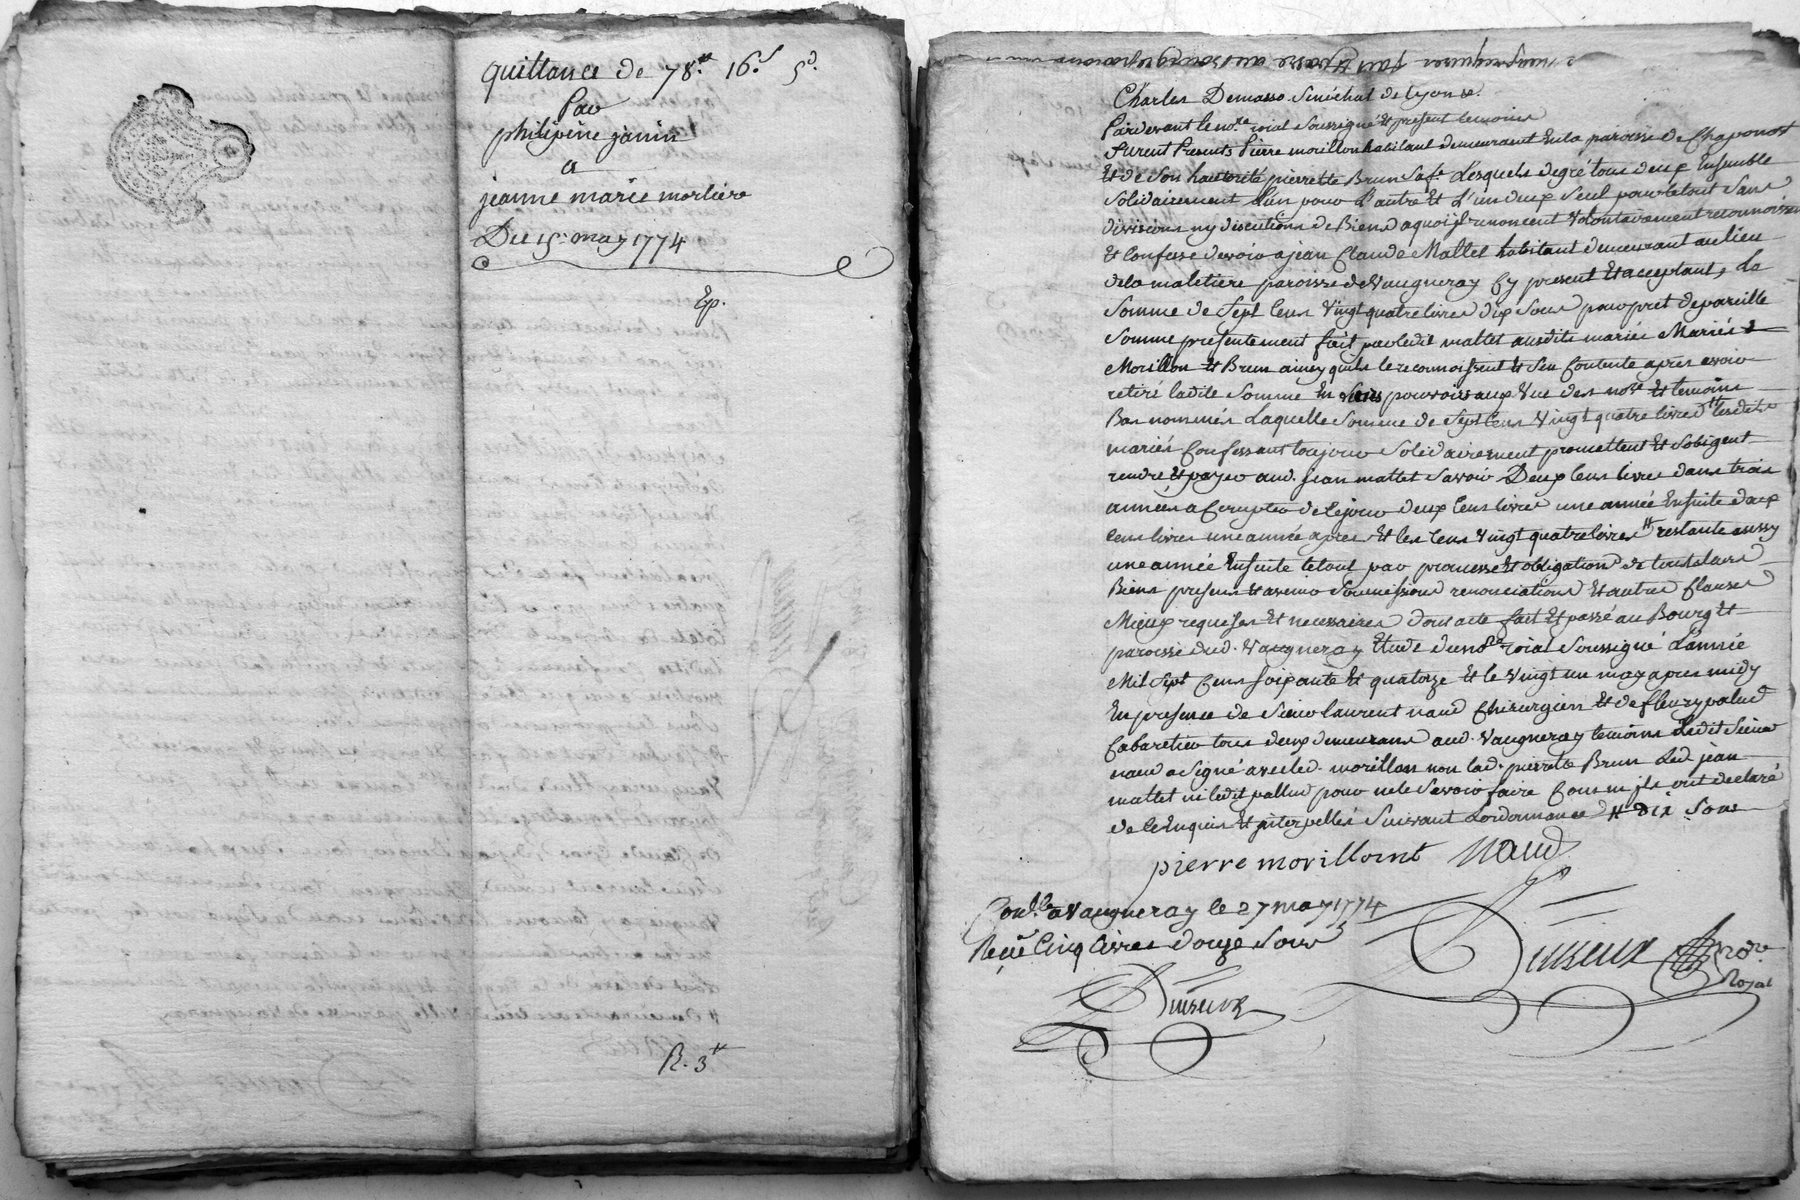 quittance de 78.tt 16.s 5.d
Par
philipine janin
a
jeanne marie morliere
Du 15. may 1774
Ep.
R. 3tt
Charles Demasso Sénéchal de Lyon &c.
Pardevant le no.re roial Soussigné Et present temoins
Furent Presents Pierre morillon habitant demeurant En la paroisse de Chaponost
Et de Son hautorité pierrette Brun Sa fe. Lesquels de gré tous deux Ensemble
Solidairement L'un pour L'autre Et L'un deux Seul pour le tout Sans
divisions ny discutions de Biens a quoi ils renoncent volontairement reconnoissent
Et Confesse devoir a jean Claude Mattet habitant demeurant au lieu
de la maletiere paroisse de Vaugneray Cy present Et acceptant, La
Somme de Sept Cens Vingt quatre livres dix Sous pour pret de pareille
Somme presentement fait par ledit mattet ausdits mariés Mariés
Morillon Et Brun ainsy quils le reconnoissent Et Sen Contente apres avoir
retiré ladite Somme En pouvoir aux Vue des no.re Et temoins
Bas nommés Laquelle Somme de Sept Cens Vingt quatre livres tt lesdits
mariés Confessant toujour Solidairement promettent Et Sobligent
rendre Et payer aud. jean mattet Savoir Deux Cens livres dans trois
années a Compter de Ce jour deux Cens livres une année Ensuite deux
Cens livres une année apres Et les Cens Vingt quatre livres tt restante aussy
une année Ensuite le tout par promesse Et obligation de tous leurs
Biens presens Et avenir Soumissions renonciations Et autres Clauses
Mieux requises Et necessaires dont acte fait Et passé au Bourg Et
paroisse dud. Vaugneray Etude du no.re roial Soussigné L'année
Mil Sept Cens Soixante Et quatorze Et le Vingt un may apres midy
En presence de Sieur laurent naud Chirurgien Et de fleury palud
Cabaretier tous deux demeurans aud. Vaugneray temoins Ledit Sieur
naud a Signé avec led. morillon non lad. pierrette Brun Led. jean
mattet ni ledit pallud pour ne le Savoir faire Comm ils ont declaré
de Ce Enquis Et interpellés Suivant Lordonnance tt dix Sous
pierre morillont Naud
Conl.lé a Vaugneray le 27 may 1774
Reçu Cinq livres douze Sous
Duisieux
Duisieux no.re
Royal